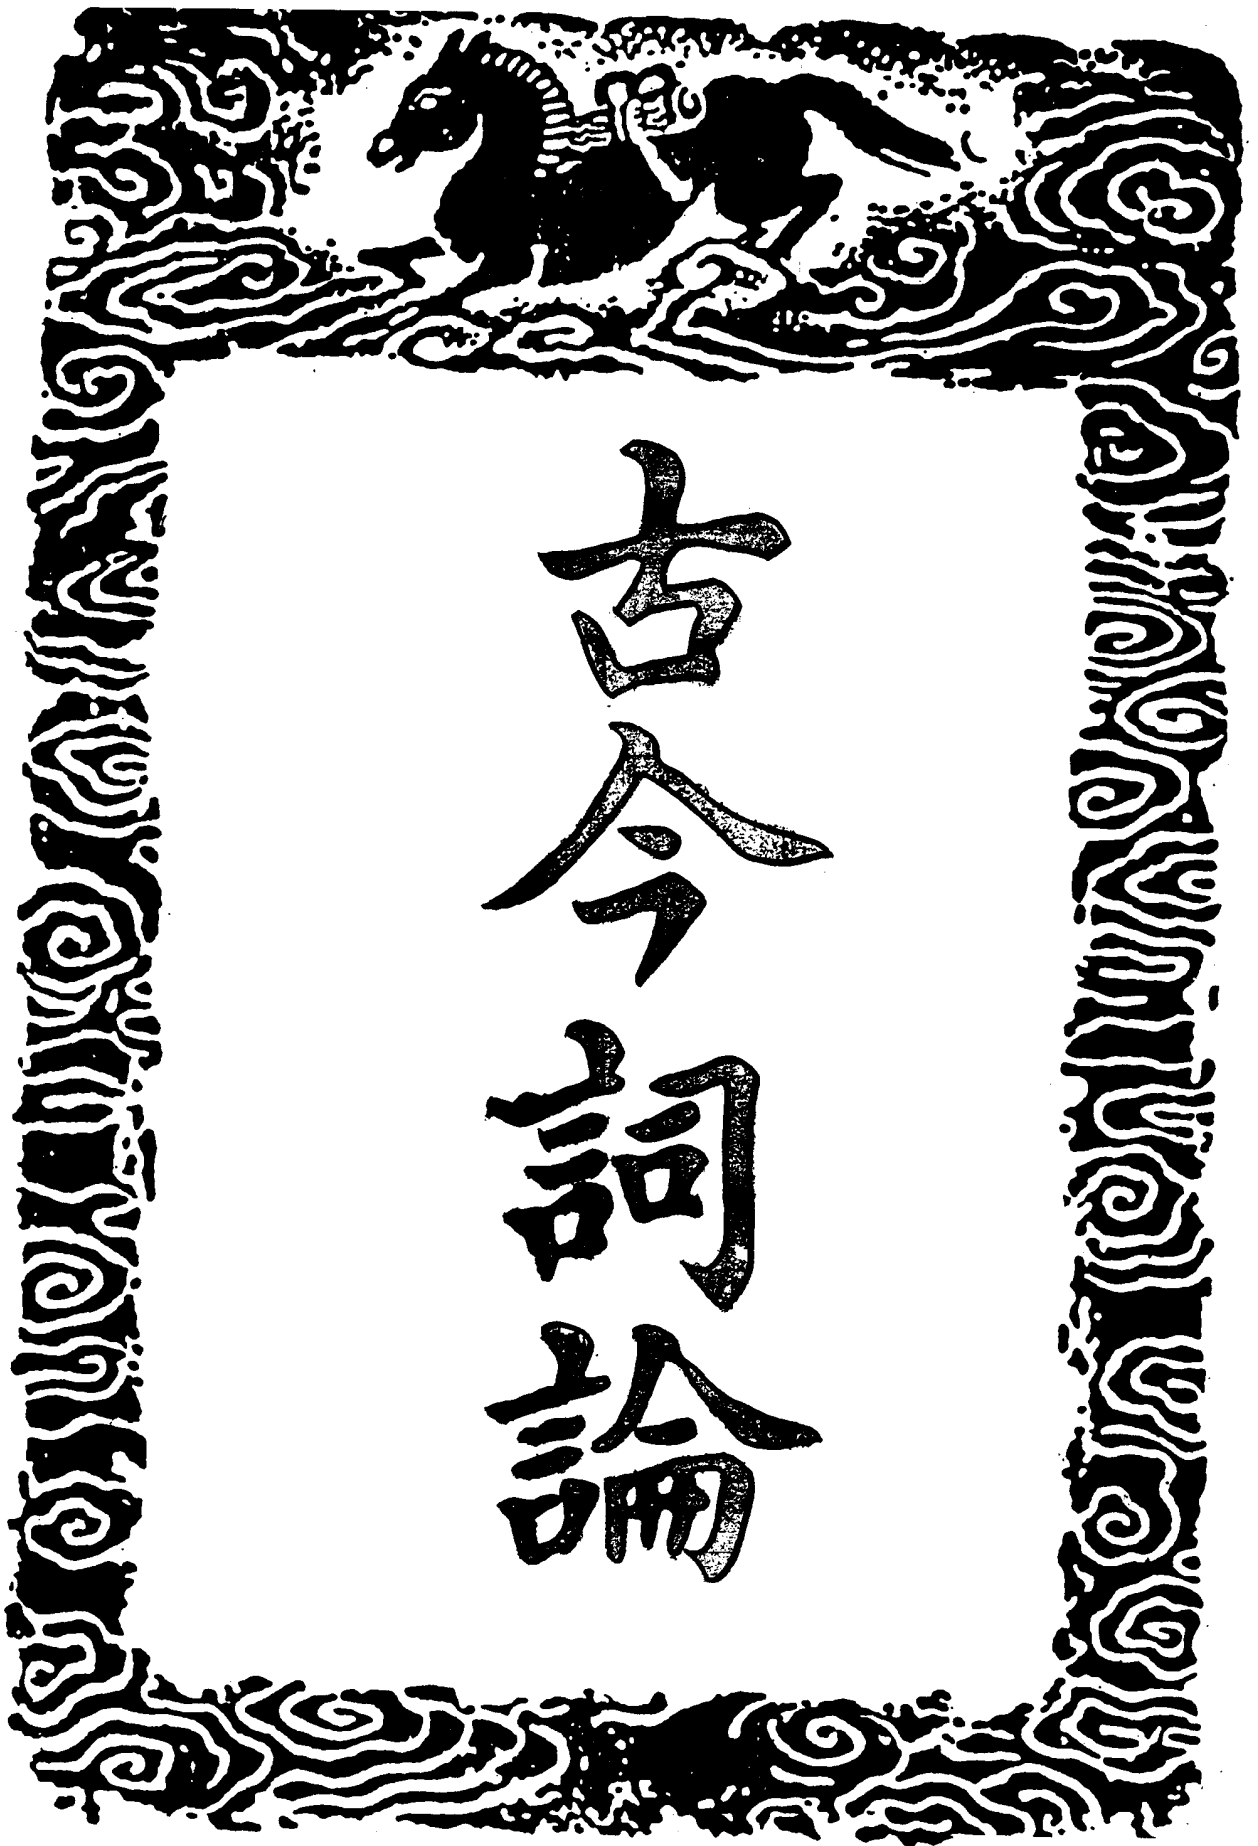 古今詞論